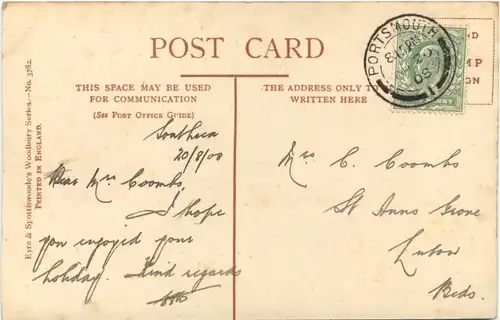 POST CARD
THIS SPACE MAY BE USED
FOR COMMUNICATION
(See POST OFFICE GUIDE)
THE ADDRESS ONLY TO
WRITTEN HERE
Eyre & Spottiswoode's Woodbury Series.—No. 3782.
PRINTED IN ENGLAND.
PORTSMOUTH
Southsea
20/8/08
Dear Mrs Coombs,
I hope
you enjoyed your
holiday. Kind regards
Mrs C. Coombs
St Anns Grove
Luton
Beds.